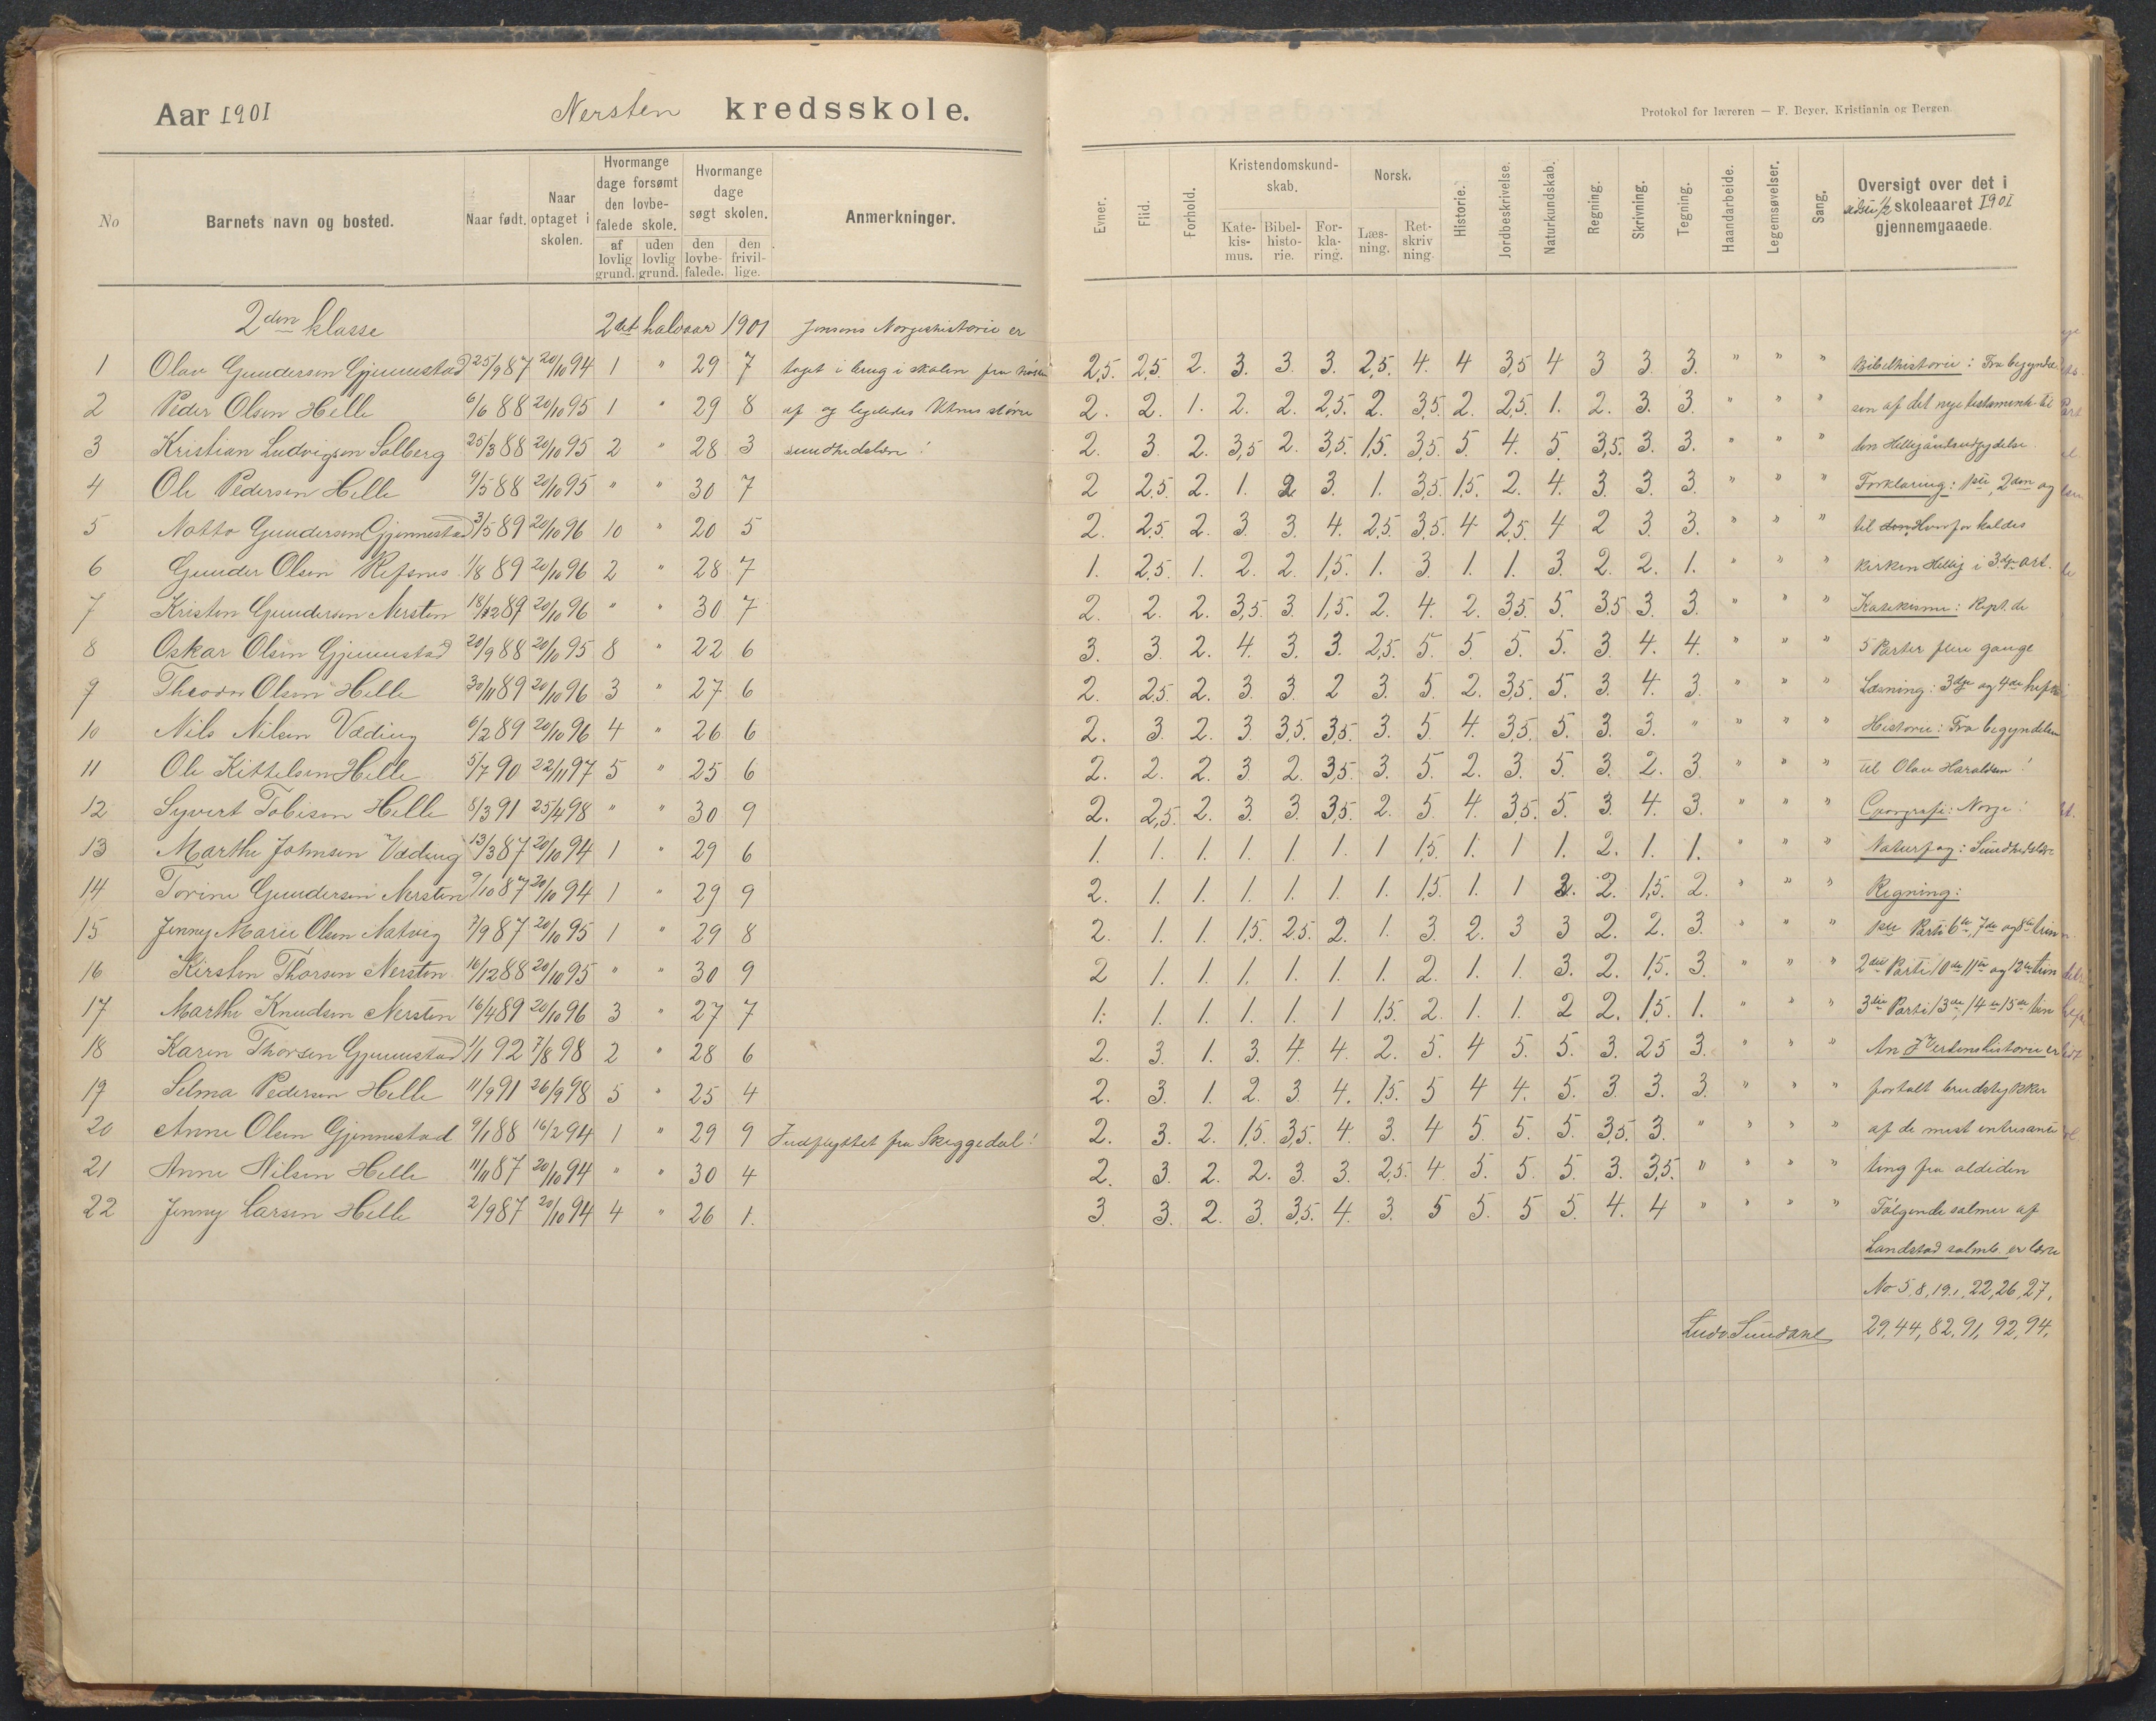 Aar 1901 Nersten kredsskole.
Protokol for læreren — F. Beyer, Kristiania og Bergen.
No
Barnets navn og bosted.
Naar født.
Naar optaget i skolen.
Hvormange dage forsømt den lovbefalede skole.
af lovlig grund.
uden lovlig grund.
Hvormange dage søgt skolen.
den lovbefalede.
den frivillige.
Anmerkninger.
Evner.
Flid.
Forhold.
Kristendomskundskab.
Katekismus.
Bibelhistorie.
Forklaring.
Norsk.
Læsning.
Retskrivning.
Historie.
Jordbeskrivelse.
Naturkundskab.
Regning.
Skrivning.
Tegning.
Haandarbeide.
Legemsøvelser.
Sang.
Oversigt over det i
sidste 1/2 skoleaaret 1901
gjennemgaaede.
2den klasse 2det halvaar 1901 Jensens Norgeshistorie er
1 Olav Gundersen Gjennestad 25/9 87 20/10 94 1 " 29 7 taget i brug i skolen fra 2,5. 2,5. 2. 3. 3. 3. 2,5. 4. 4 3,5 4 3 3. 3. " " " Bibelhistorie: Fra begyndel
2 Peder Olsen Helle 6/6 88 20/10 95 1 " 29 8 af og ligeledes større 2. 2. 1. 2. 2. 2,5. 2. 3,5. 2. 2,5. 1. 2. 3. 3. " " " sen af det nye testamente til
3 Kristian Ludvigsen Solberg 25/3 88 20/10 95 2 " 28 3 sundhedslære! 2. 3. 2. 3,5 2. 3,5. 1,5. 3,5. 5. 4. 5. 3,5. 3. 3. " " " den Helligåndsudgydelse
4 Ole Pedersen Helle 9/5 88 20/10 95 " " 30 7 2 2,5. 2. 1. 2 3. 1. 3,5. 1,5. 2. 4. 3. 3. 3. " " " Forklaring: 1ste, 2den og
5 Notto Gundersen Gjennestad 3/5 89 20/10 96 10 " 20 5 2. 2,5. 2. 3 3. 4. 2,5. 3,5. 4 2,5. 4 2 3. 3. " " " til Hvorfor kaldes
6 Gunder Olsen Refsnes 1/8 89 20/10 96 2 " 28 7 1. 2,5. 1. 2. 2. 1,5. 1. 3. 1. 1. 3. 2. 2. 1. " " " kirken Hellig i 3dje art.
7 Kristen Gundersen Nersten 18/12 89 20/10 96 " " 30 7 2. 2. 2. 3,5. 3. 1,5. 2. 4. 2. 3,5 5. 3,5 3. 3. " " " Katekisme: Rept. de
8 Oskar Olsen Gjennestad 20/9 88 20/10 95 8 " 22 6 3. 3. 2. 4. 3. 3. 2,5. 5. 5. 5. 5. 3. 4. 4. " " " 5 Parter flere gange
9 Theodor Olsen Helle 30/11 89 20/10 96 3 " 27 6 2. 2,5 2. 3. 3. 2 3. 5. 2. 3,5. 5. 3. 4. 3. " " " Læsning: 3dje og 4de hefte
10 Nils Nilsen Væding 6/2 89 20/10 96 4 " 26 6 2. 3. 2. 3. 3,5. 3,5. 3. 5. 4. 3,5. 5. 3. 3. " " " " Historie: Fra begyndelsen
11 Ole Kittelsen Helle 5/7 90 22/11 97 5 " 25 6 2. 2. 2. 3. 2. 3,5. 3. 5. 2. 3. 5. 3. 2. 3. " " " til Olav Haraldsen!
12 Syvert Tobisen Helle 8/3 91 25/4 98 " " 30 9 2. 2,5. 2. 3. 3. 3,5. 2. 5. 4. 3,5. 5. 3 4. 3. " " " Geografi: Norge!
13 Marthe Johnsen Væding 13/3 87 20/10 94 1 " 29 6 1. 1. 1. 1. 1. 1. 1 1,5. 1. 1 1. 2. 1. 1. " " " Naturfag: Sundhedslære
14 Torine Gundersen Nersten 9/10 87 20/10 94 1 " 29 9 2. 1. 1. 1. 1. 1. 1. 1,5. 1. 1 2. 2. 1,5. 2. " " " Regning:
15 Jenny Marie Olsen Natvig 7/9 87 20/10 95 1 " 29 8 2. 1. 1. 1,5. 2,5. 2. 1. 3. 2. 3 3 2. 2. 3. " " " 1ste Parti 6te, 7de og 8de trin
16 Kirsten Thorsen Nersten 16/12 88 20/10 95 " " 30 9 2 1. 1. 1. 1. 1. 1. 2. 1. 1. 3. 2. 1,5. 3. " " " 2det Parti 10de 11te og 12te trin
17 Marthe Knudsen Nersten 16/4 89 20/10 96 3 " 27 7 1. 1. 1. 1. 1. 1 1,5. 2. 1. 1. 2 2. 1,5. 1. " " " 3die Parti 13de, 14de 15de trin
18 Karen Thorsen Gjennestad 1/1 92 7/8 98 2 " 28 6 2. 3. 1. 3. 4. 4. 2. 5. 4 5. 5. 3. 2,5 3. " " " Verdenshistorie er
19 Selma Pedersen Helle 11/9 91 26/9 98 5 " 25 4 2. 3. 1. 2. 3. 4. 1,5. 5 4 4. 5. 3. 3. 3. " " " fortalt brudstykker
20 Anne Olsen Gjennestad 9/1 88 16/2 94 1 " 29 9 Indflyttet fra Skeggedal! 2. 3. 2. 1,5. 3,5. 4. 3. 4 5. 5. 5. 3,5. 3. " " " " af de mest intresante
21 Anne Nilsen Helle 11/11 87 20/10 94 " " 30 4 2. 3. 2. 2. 3. 3. 2,5. 4. 5. 5. 5. 3. 3,5. " " " " ting fra oldtiden
22 Jenny Larsen Helle 2/9 87 20/10 94 4 " 26 1. 3. 3. 2. 3. 3,5. 4. 3. 5 5. 5 5. 4. 4 " " " " Følgende salmer af
Landstad salmb. er lært
No 5, 8, 19, 22, 26, 27,
Ludv. Sundane 29, 44, 82, 91, 92, 94,